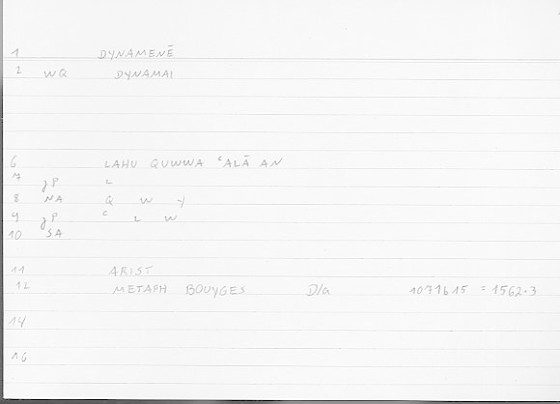 1 DYNAMENĒ
2 WQ DYNAMAI
6 LAHU QUWWA ʿALĀ AN
7 gP L
8 NA Q W Y
9 gP ʿ L W
10 SA
11 ARIST
12 METAPH BOUYGES D/a 1071b15 = 1562.3
14
16